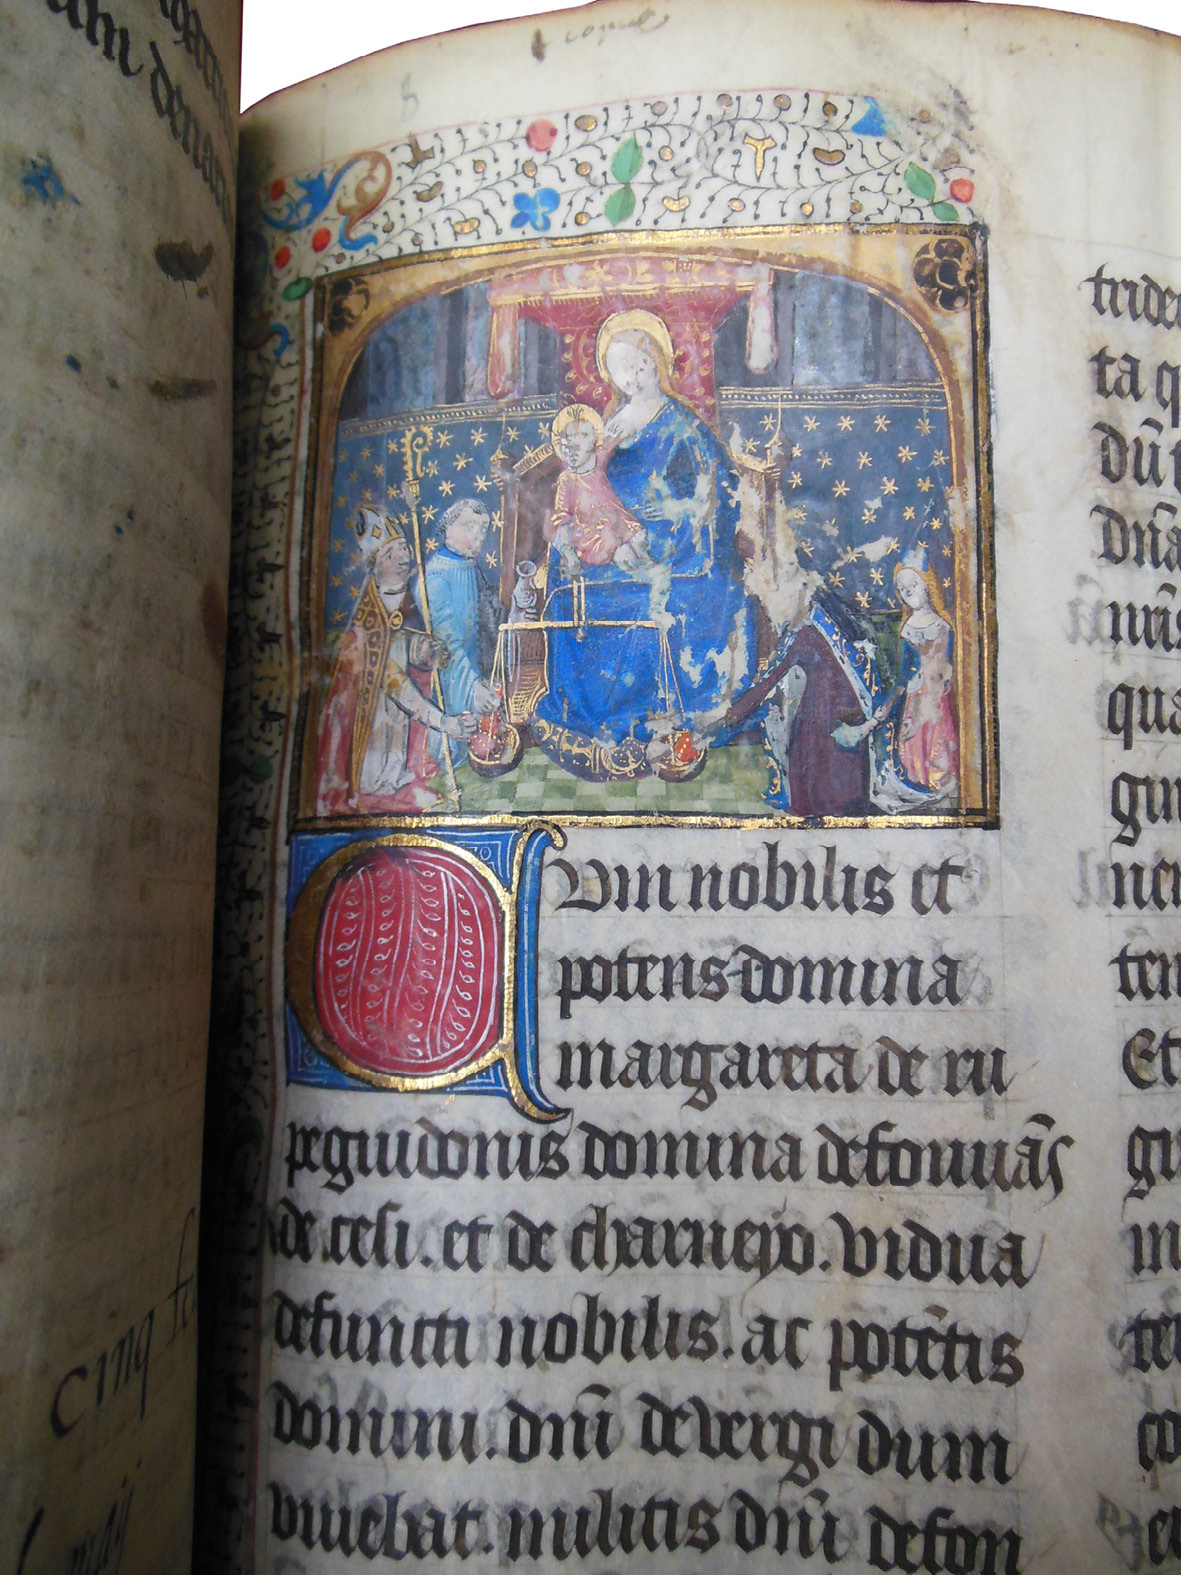 copie
Cum nobilis et
potens domina
margareta de ru
peguidonis domina defonuãs
de.cesi.et de charneyo.vidua
defuncti nobilis.ac potẽtis
domini.dnĩ devergi dum
vivebat.militis dnĩ defon
tride
ta q
dũ
dñã
nrĩs
qua
gin
ner
ten
Et
gin
in
ter
co
et
cinq